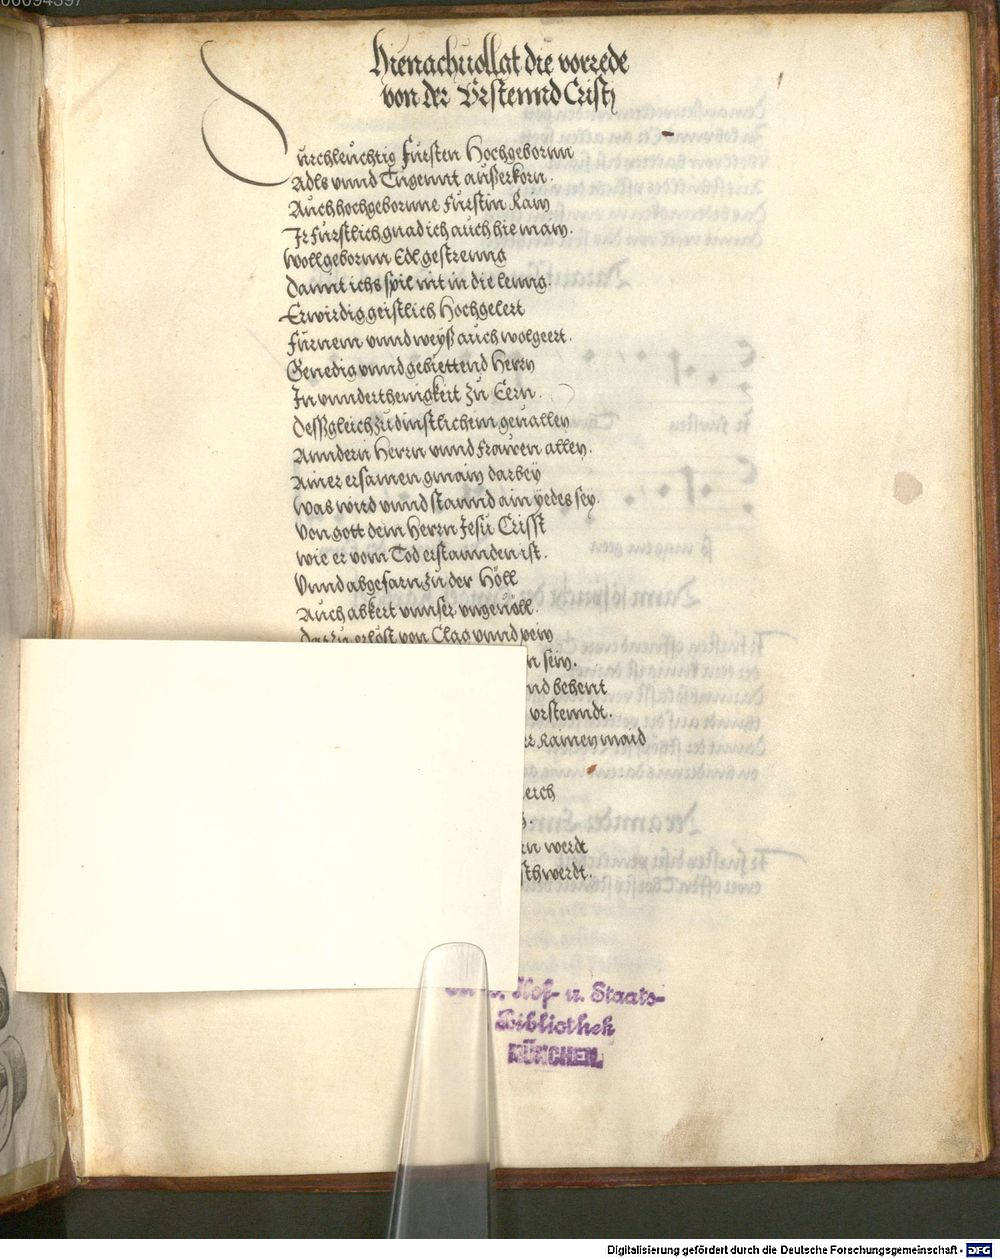 Hienachuollat die vorrede
von der Vrstennd Cristy
Durchleuchtig Fursten Hochgebornn
Adls vnnd Tugennt ausserkorn.
Auch hochgebornne Furstin Rain
Ir Furstlich gnad ich auch hie main.
Wollgebornn Edl gestrenng
Damit ichs spil nit in die lenng.
Erwirdig geistlich Hochgelert
Furnem vnnd weyß auch wolgeert.
Genedig vnnd gebiettend Herrn
In vnnderthenigkeit zu Eern.
Desßgleich zu dinstlichem geuallen
Anndern Herrn vnnd Frawen allen.
Ainer ersamen gmain darbey
Was wird vnnd stannd ain yedes sey.
Von gott dem Herrn Jesu Crisst
wie er vom Tod erstannden ist.
Vnnd abgefarn zu der Höll
Auch abkert vnnser vngeuöll.
Dar zu erlöst von Clag vnnd pein
n sein.
nd behent
vrstenndt.
er Rainen maid
erch
rn werdt
sth werdt.
Hof- u. Staats-
Bibliothek
MÜNCHEN
Digitalisierung gefördert durch die Deutsche Forschungsgemeinschaft - DFG